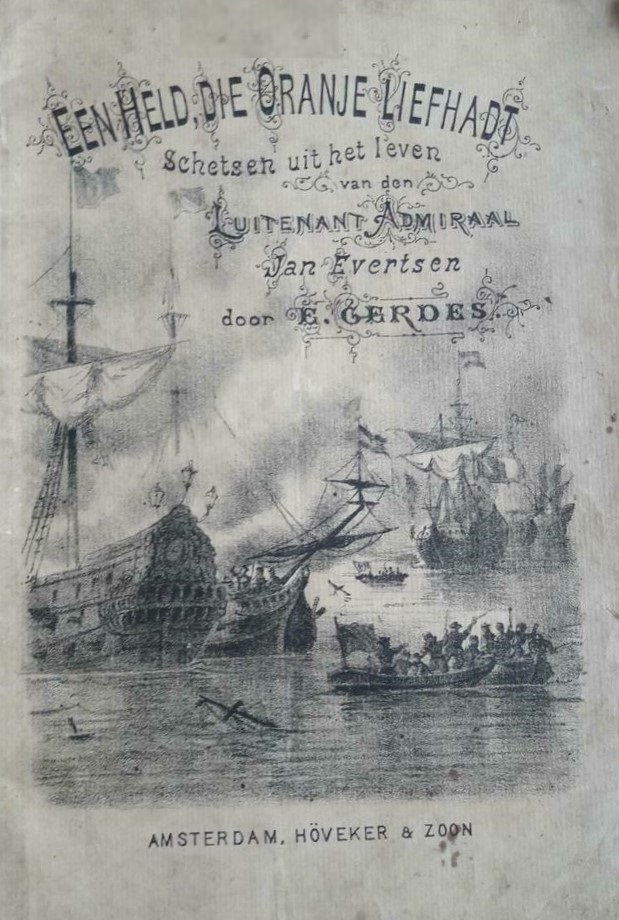 EEN HELD, DIE ORANJE LIEFHADT
Schetsen uit het leven
van den
LUITENANT ADMIRAAL
Jan Evertsen
door E. GERDES.
AMSTERDAM, HÖVEKER & ZOON